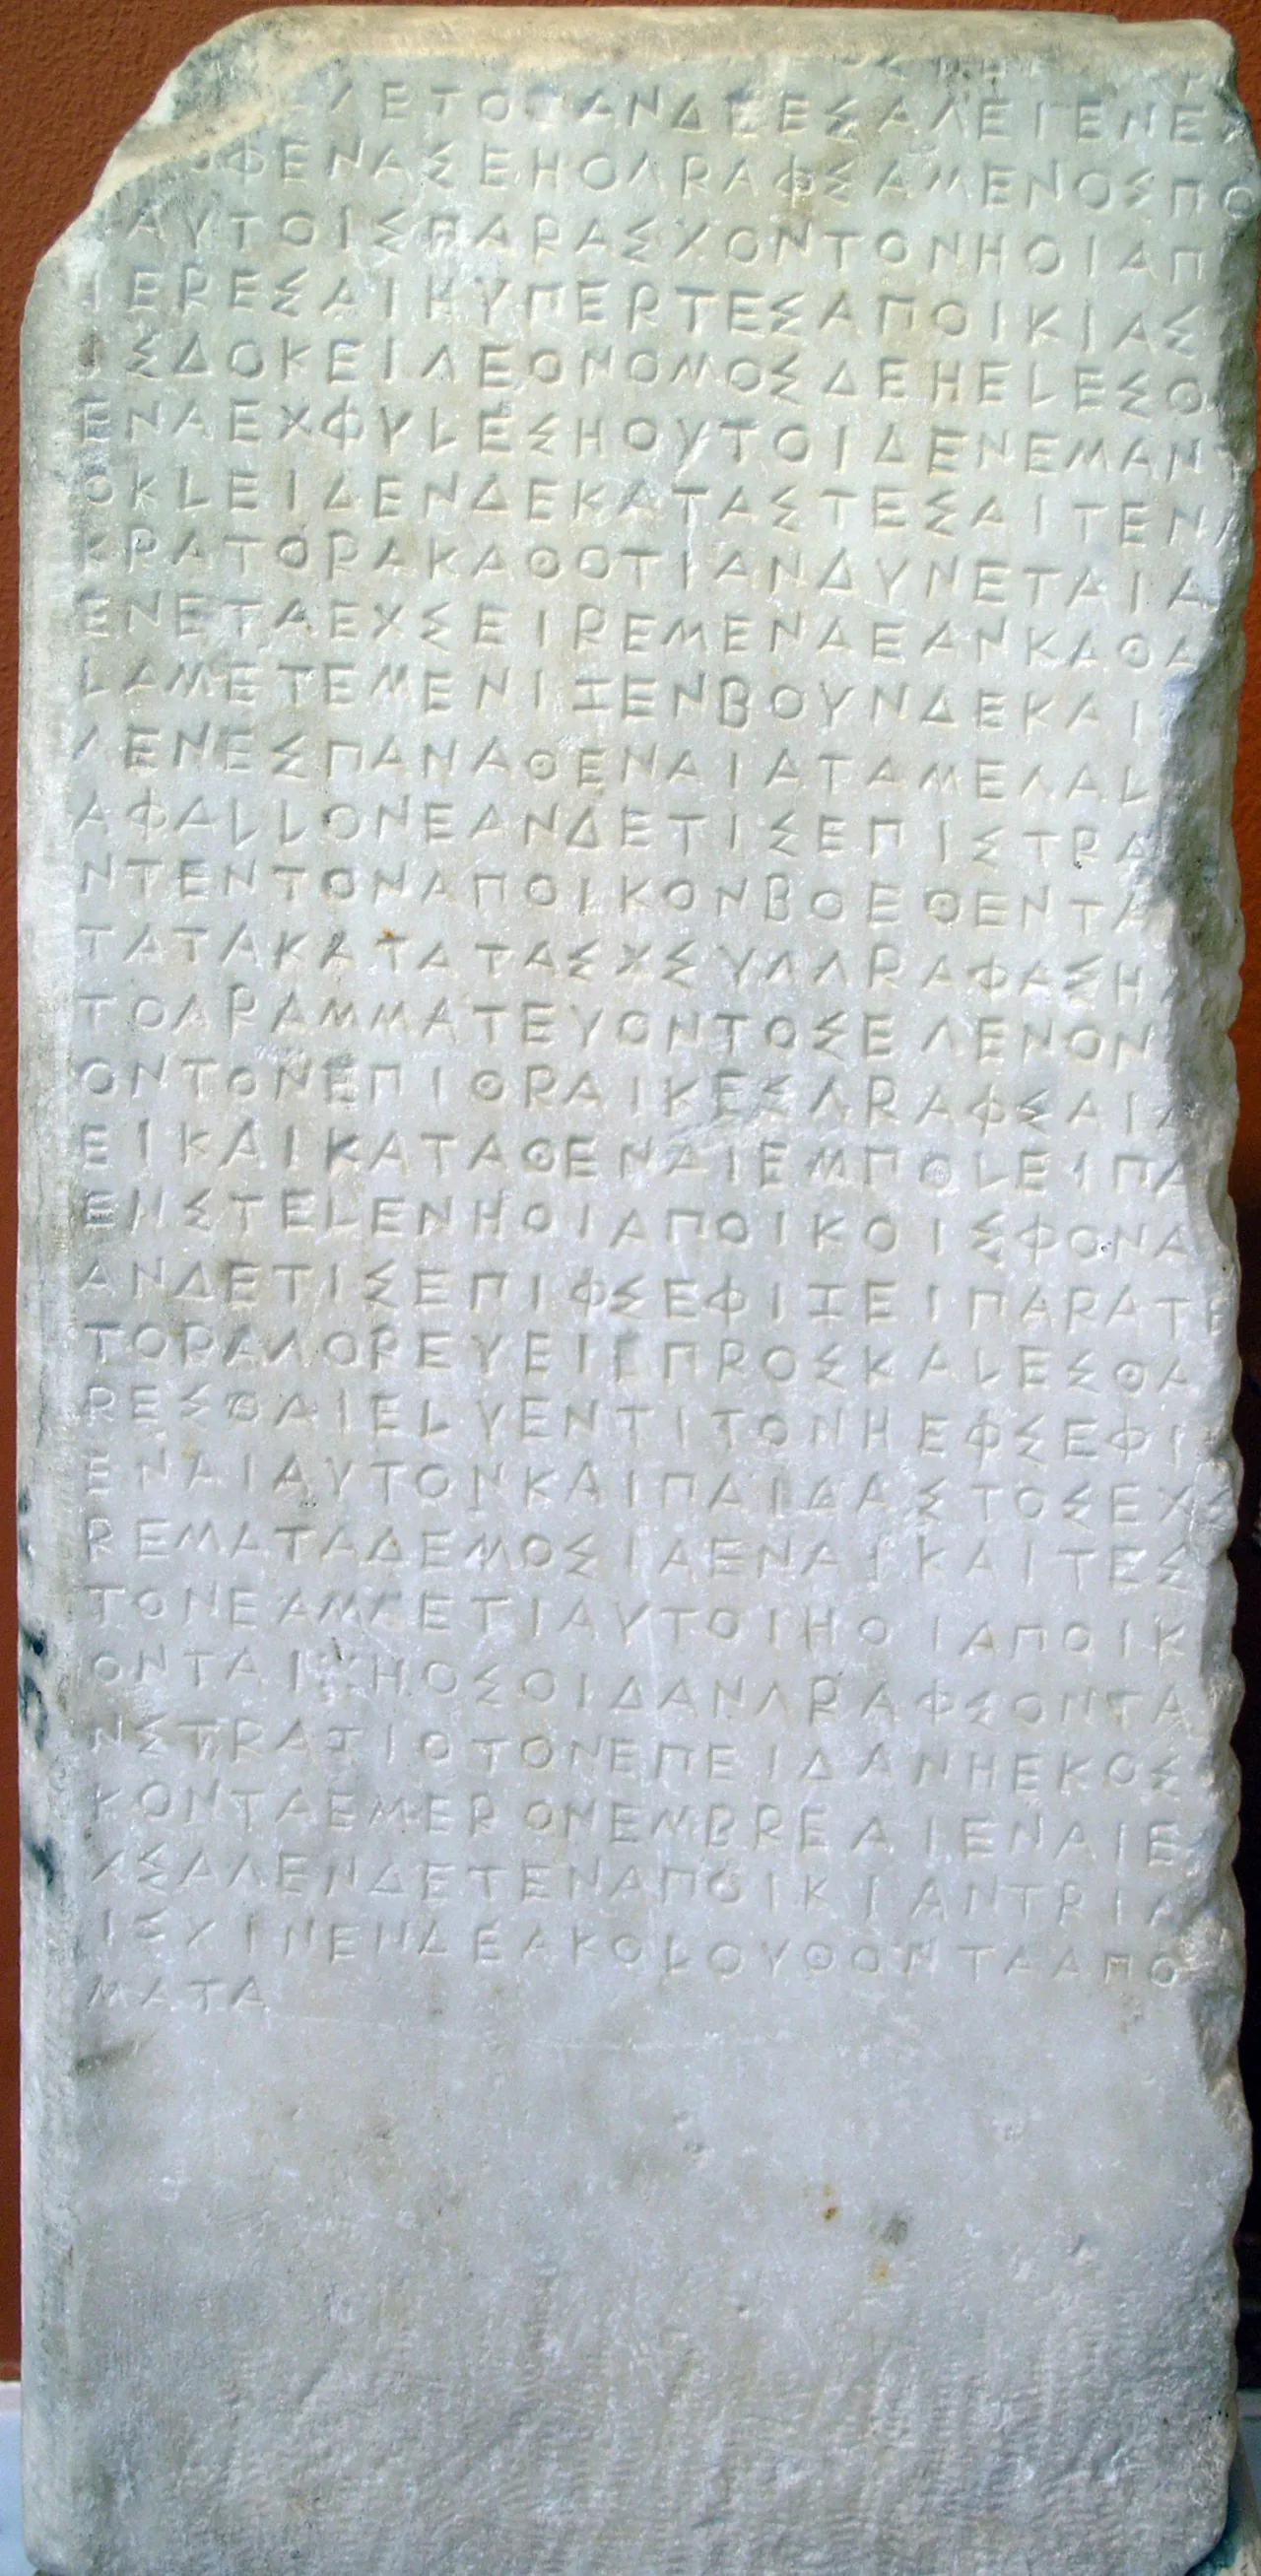 ΓΕΤΟ ΑΝΔΕΕΣΑΓΕΙΕΝΕ
ΦΕΝΑΣΕΗΟΓΡΑΦΣΑΜΕΝΟΣΠΟ
ΑΥΤΟΙΣΠΑΡΑΣΧΟΝΤΟΝΗΟΙΑΠ
ΙΕΡΕΣΑΙΗΥΠΕΡΤΕΣΑΠΟΙΚΙΑΣ
ΣΔΟΚΕΙΓΕΟΝΟΜΟΣΔΕΗΕΛΕΣΘ
ΕΝΑΕΧΦΥΛΕΣΗΟΥΤΟΙΔΕΝΕΜΑΝΤ
ΟΚΛΕΙΔΕΝΔΕΚΑΤΑΣΤΕΣΑΙΤΕΝΑ
ΚΡΑΤΟΡΑΚΑΘΟΤΙΑΝΔΥΝΕΤΑΙΑ
ΕΝΕΤΑΕΧΣΕΙΡΕΜΕΝΑΕΑΝΚΑΘΑ
ΛΑΜΕΤΕΜΕΝΙΖΕΝΒΟΥΝΔΕΚΑΙ
ΓΕΝΕΣΠΑΝΑΘΕΝΑΙΑΤΑΜΕΓΑΛ
ΑΦΑΛΛΟΝΕΑΝΔΕΤΙΣΕΠΙΣΤΡΑ
ΝΤΕΝΤΟΝΑΠΟΙΚΟΝΒΟΕΘΕΝΤΑ
ΤΑΤΑΚΑΤΑΤΑΣΧΣΥΓΓΡΑΦΑΣΗΑ
ΤΟΓΡΑΜΜΑΤΕΥΟΝΤΟΣΕΓΕΝΟΝ
ΟΝΤΟΝΕΠΙΘΡΑΙΚΕΣΓΡΑΦΣΑΙΔ
ΕΙΚΑΙΚΑΤΑΘΕΝΑΙΕΜΠΟΛΕΙΠΑ
ΕΝΣΤΕΛΕΝΗΟΙΑΠΟΙΚΟΙΣΦΟΝΑ
ΑΝΔΕΤΙΣΕΠΙΦΣΕΦΙΖΕΙΠΑΡΑΤΕ
ΤΟΡΑΓΟΡΕΥΕΙΕΠΡΟΣΚΑΛΕΣΘΑ
ΡΕΣΘΑΙΕΛΥΕΝΤΙΤΟΝΗΕΦΣΕΦΙ
ΕΝΑΙΑΥΤΟΝΚΑΙΠΑΙΔΑΣΤΟΣΕΧΣ
ΡΕΜΑΤΑΔΕΜΟΣΙΑΕΝΑΙΚΑΙΤΕΣ
ΤΟΝΕΑΜΜΕΤΙΑΥΤΟΙΗΟΙΑΠΟΙΚ
ΟΝΤΑΙΗΟΣΟΙΔΑΝΓΡΑΦΣΟΝΤΑ
ΝΣΤΡΑΤΙΟΤΟΝΕΠΕΙΔΑΝΗΕΚΟΣ
ΚΟΝΤΑΕΜΕΡΟΝΕΜΒΡΕΑΙΕΝΑΙΕ
ΧΣΑΓΕΝΔΕΤΕΝΑΠΟΙΚΙΑΝΤΡΙΑ
ΙΣΧΙΝΕΝΔΕΑΚΟΛΟΥΘΟΝΤΑΑΠΟ
ΜΑΤΑ